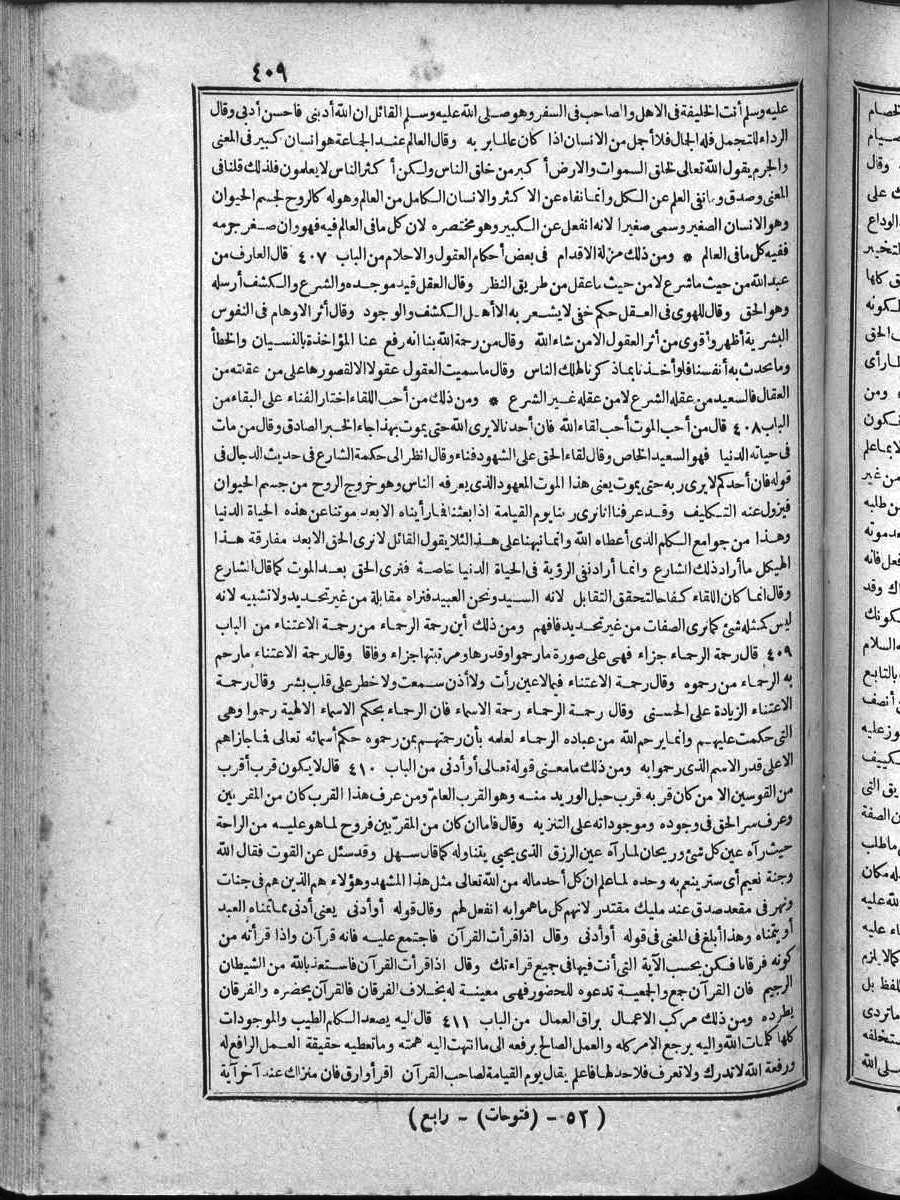 ٤٠٩
عليه وسلم أنت الخليفة فى الاهل والصاحب فى السفر وهو صلى الله عليه وسلم القائل ان الله أدبنى فاحسن أدبى وقال
الرداء للتجمل فله الجمال فلا أجمل من الانسان اذا كان عالما بربه وقال العالم عند الجاعة هو انسان كبير فى المعنى
والجرم يقول الله تعالى لخلق السموات والارض أكبر من خلق الناس ولكن أكثر الناس لا يعلمون فلذلك قلنا فى
المعنى وصدق وما نفى العلم عن الكل وانما نفاه عن الاكثر والانسان الكامل من العالم وهو له كالروح لجسم الحيوان
وهو الانسان الصغير وسمى صغيرا لانه انفعل عن الكبير وهو مختصره لان كل ما فى العالم فيه فهو وان صغر جرمه
ففيه كل ما فى العالم * ومن ذلك مزلة الاقدام فى بعض أحكام العقول والاحلام من الباب ٤٠٧ قال العارف من
عبد الله من حيث ما شرع لا من حيث ما عقل من طريق النظر وقال العقل قيد موجده والشرع والكشف أرسله
وهو الحق وقال للهوى فى العقل حكم خفى لا يشعر به الا أهل الكشف والوجود وقال أثر الاوهام فى النفوس
البشرية أظهر وأقوى من أثر العقول الا من شاء الله وقال من رحمة الله بنا انه رفع عنا المؤاخذة بالنسيان والخطأ
وما تحدث به أنفسنا فلو أخذنا بما ذكرنا لهلك الناس وقال ما سميت العقول عقولا الا لقصورها على من عقلته من
العقال فالسعيد من عقله الشرع لا من عقله غير الشرع * ومن ذلك من أحب اللقاء اختار الفناء على البقاء من
الباب ٤٠٨ قال من أحب الموت أحب لقاء الله فان أحدنا لا يرى الله حتى يموت بهذا جاء الخبر الصادق وقال من مات
فى حياته الدنيا فهو السعيد الخاص وقال لقاء الحق على الشهود فناء وقال انظر الى حكمة الشارع فى حديث الدجال فى
قوله فان أحدكم لا يرى ربه حتى يموت يعنى هذا الموت المعهود الذى يعرفه الناس وهو خروج الروح من جسم الحيوان
فيزول عنه التكليف وقد عرفنا انا نرى ربنا يوم القيامة اذا بعثنا فما رأيناه الا بعد موتنا عن هذه الحياة الدنيا
وهذا من جوامع الكلم الذى أعطاه الله وانما نبهنا على هذا لئلا يقول القائل لا نرى الحق الا بعد مفارقة هذا
الهيكل ما أراد ذلك الشارع وانما أراد نفى الرؤية فى الحياة الدنيا خاصة فنرى الحق بعد الموت كما قال الشارع
وقال انما كان اللقاء كفاحا لتحقق التقابل لانه السيد ونحن العبيد فنراه مقابلة من غير تحديد ولا تشبيه لانه
ليس كمثله شئ كما نرى الصفات من غير تحديد فافهم ومن ذلك أين رحمة الرحماء من رحمة الاعتناء من الباب
٤٠٩ قال رحمة الرحماء جزاء فهى على صورة ما رحموا وقدرها ومرتبتها جزاء وفاقا وقال رحمة الاعتناء ما رحم
به الرحماء من رحموه وقال رحمة الاعتناء فيما لا عين رأت ولا أذن سمعت ولا خطر على قلب بشر وقال رحمة
الاعتناء الزيادة على الحسنى وقال رحمة الرحماء رحمة الاسماء فان الرحماء بحكم الاسماء الالهية رحموا وهى
التى حكمت عليهم وانما يرحم الله من عباده الرحماء لعلمه بأن رحمتهم بمن رحموه حكم أسمائه تعالى فما جازاهم
الا على قدر الاسم الذى رحموا به ومن ذلك ما معنى قوله تعالى أو أدنى من الباب ٤١٠ قال لا يكون قرب أقرب
من القوسين الا من كان قربه قرب حبل الوريد منه وهو القرب العام ومن عرف هذا القرب كان من المقربين
وعرف سر الحق فى وجوده وموجوداته على التنزيه وقال فاما ان كان من المقربين فروح لما هو عليه من الراحة
حيث رآه عين كل شئ وريحان لما رآه عين الرزق الذى يحيى يتناوله كما قال سهل وقد سئل عن القوت فقال الله
وجنة نعيم أى ستر ينعم به وحده لما علم ان كل أحد ماله من الله تعالى مثل هذا المشهد وهؤلاء هم الذين هم فى جنات
ونهر فى مقعد صدق عند مليك مقتدر لانهم كل ما هموا به انفعل لهم وقال قوله أو أدنى يعنى أدنى مما تمناه العبد
أو يتمناه وهذا أبلغ فى المعنى فى قوله أو أدنى وقال اذا قرأت القرآن فاجتمع عليه فانه قرآن واذا قرأته من
كونه فرقانا فكن بحسب الآية التى أنت فيها فى جميع قراءتك وقال اذا قرأت القرآن فاستعذ بالله من الشيطان
الرجيم فان القرآن جمع والجمعية تدعوه للحضور فهى معينة له بخلاف الفرقان فالقرآن يحضره والفرقان
يطرده ومن ذلك مركب الاعمال براق العمال من الباب ٤١١ قال ليه يصعد الكلم الطيب والموجودات
كلها كلمات الله واليه يرجع الامر كله والعمل الصالح يرفعه الى ما انتهت اليه همته وما تعطيه حقيقة العمل الرافع له
ورفعة الله لا تدرك ولا تعرف فلا حد لها فاعلم يقال يوم القيامة لصاحب القرآن اقرأ وارق فان منزلك عند آخر آية
( ٥٢ - (فتوحات) - رابع )